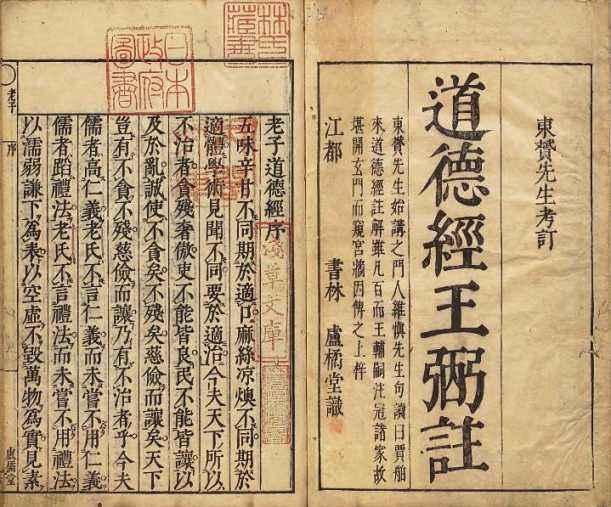 東贇先生考訂
道德經王弼註
東贇先生始講之門人維愼先生句讀曰賈舶
來道德經註解雖凡百而王輔嗣注冠諸家故
堪開玄門而窺宮牆因傳之上梓
江都 書林 盧橘堂識
林氏藏書
日本政府圖書
淺草文庫
老子道德經序
五味辛甘不同期於適口麻絲凉燠不同期於
適體學術見聞不同要於適治今夫天下所以
不治者貪殘奢傲吏不能皆良民不能皆讓以
及於亂誠使不貪矣不殘矣慈儉而讓矣天下
豈有不貪不殘慈儉而讓乃有不治者乎今夫
儒者高仁義老氏不言仁義而未嘗不用仁義
儒者蹈禮法老氏不言禮法而未嘗不用禮法
以濡弱謙下爲表以空虛不毀萬物爲實見素
老子 序 盧橘堂